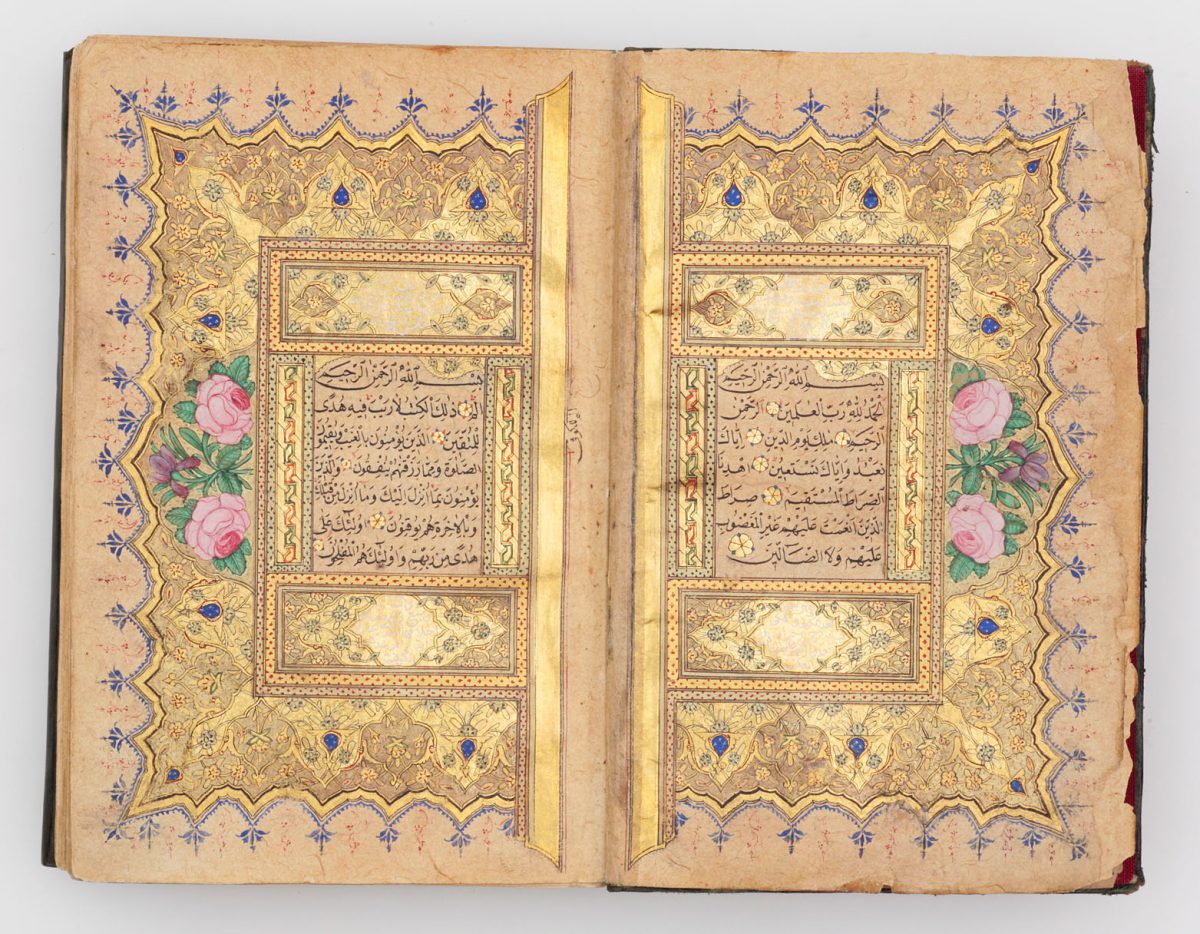 بسم الله الرحمن الرحيم
الحمد لله رب العلمين الرحمن
الرحيم ملك يوم الدين اياك
نعبد واياك نستعين اهدنا
الصراط المستقيم صراط
الذين انعمت عليهم غير المغضوب
عليهم ولا الضالين
بسم الله الرحمن الرحيم
الم ذلك الكتاب لا ريب فيه هدى
للمتقين الذين يؤمنون بالغيب ويقيمون
الصلوة ومما رزقنهم ينفقون والذين
يؤمنون بما انزل اليك وما انزل من قبلك
وبالاخرة هم يوقنون اولئك على
هدى من ربهم واولئك هم المفلحون